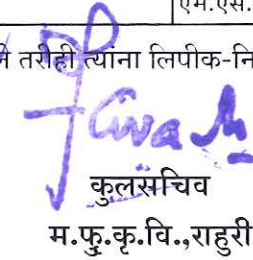 एम.एस.
तरीही त्यांना लिपीक-नि
कुलसचिव
म.फु.कृ.वि.,राहुरी